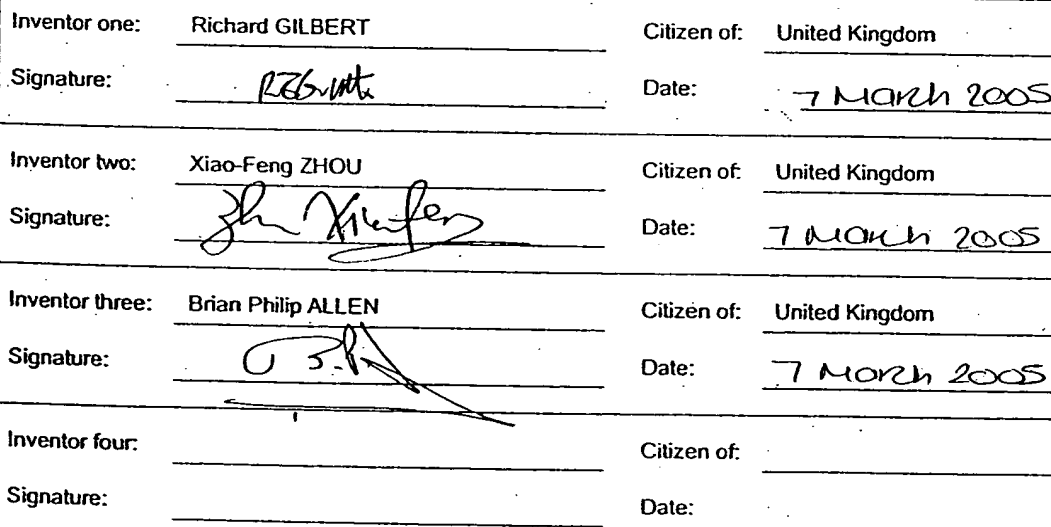 Inventor one: Richard GILBERT Citizen of: United Kingdom
Signature: Date: 7 March 2005
Inventor two: Xiao-Feng ZHOU Citizen of: United Kingdom
Signature: Zhou Xiaofeng Date: 7 March 2005
Inventor three: Brian Philip ALLEN Citizen of: United Kingdom
Signature: Date: 7 March 2005
Inventor four: Citizen of:
Signature: Date: